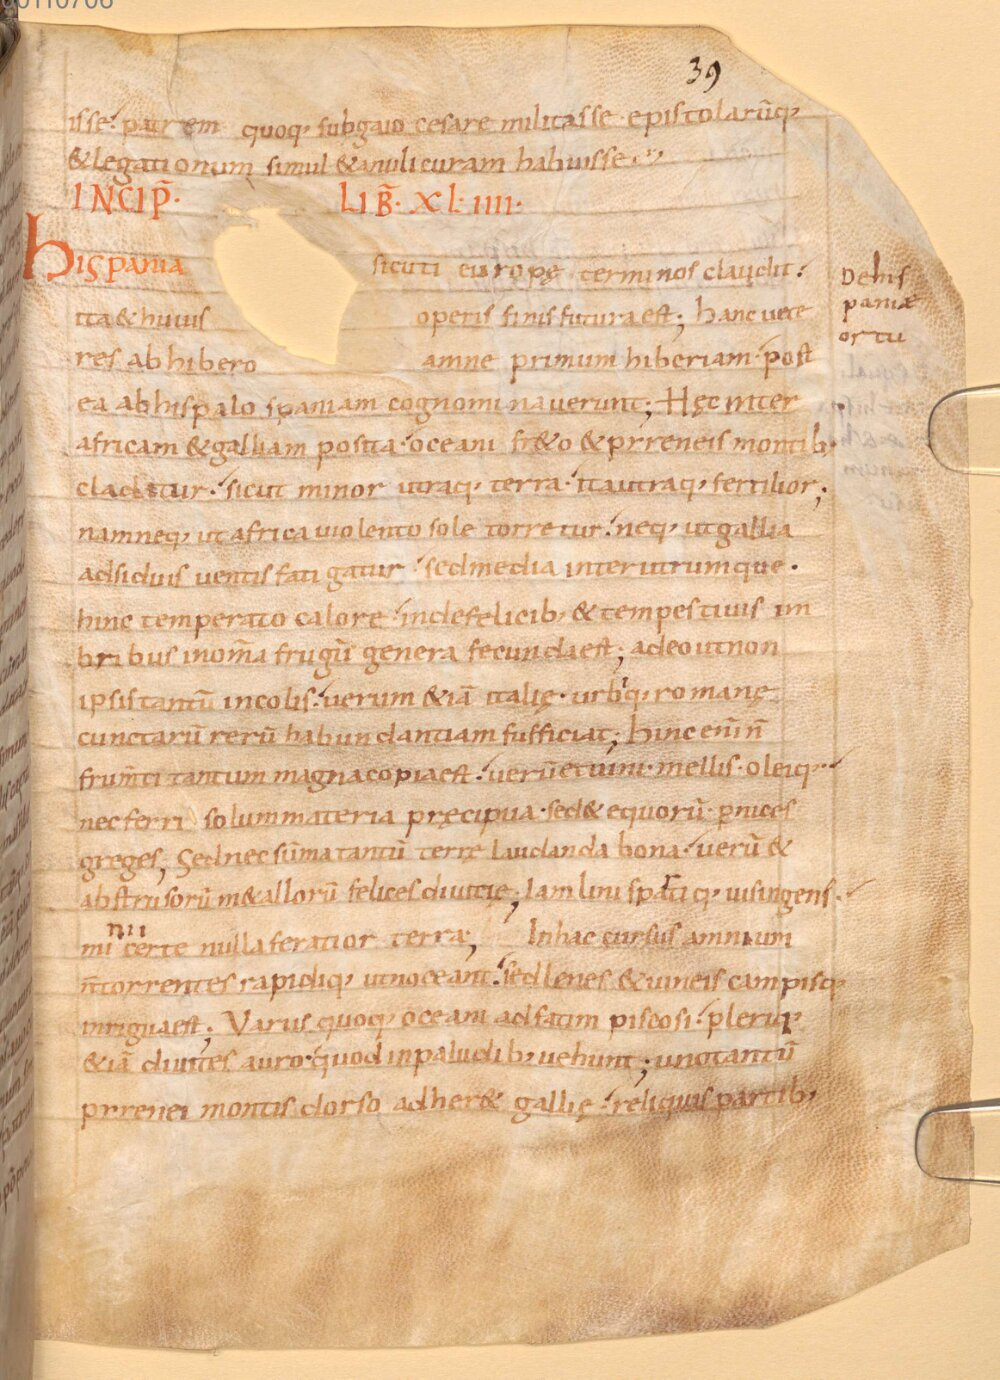 00110706
39
isse. patrem quoq; subgaio cesare militasse. epistolarūq;
& legationum simul & anuli curam habuisse.
INCIP̄. LIB̄. XLIIII.
hispania sicuti europę terminos claudit.
ita & huius operis finis futura est; hanc vete
res ab hibero amne primum hiberiam. post
ea ab hispalo spaniam cognominaverunt; Hęc inter
africam & galliam posita. oceani fr&o & pyreneis montib;
claditur. sicut minor utraq; terra. ita utraq; fertilior;
nam neq; ut africa violento sole torretur. neq; ut gallia
adsiduis ventis fatigatur. sed media inter utrumque.
hinc temperato calore. inde felicib; & tempestivis im
bribus in om̄a frugū genera fecunda est; adeo ut non
ipsis tantū incolis. verum & iā italię. urbiq; romanę
cunctarū rerū habundantiam sufficiat; hinc enī n̄
frum̄ti tantum magna copia est. verū et vini. mellis. oleiq;
nec ferri solum materia pręcipua. sed & equorū. ꝑnices
greges; Sed nec sūma tantū terrę laudanda bona. verū &
abstrusorū m&allorū felices divitię; Iam lini spartiq; vis ingens.
minii certe nulla feratior terra; In hac cursus amnium
n̄ torrentes rapidiq; ut noceant. sed lenes & vineis campisq;
inrigua est; Varus quoq; oceani ad fatim piscosi. pleriq;
& iā divites auro. quod in paludib; vehunt; uno tantū
prrenei montis dorso adher& gallię. reliquis partib;
De his
paniæ
ortu